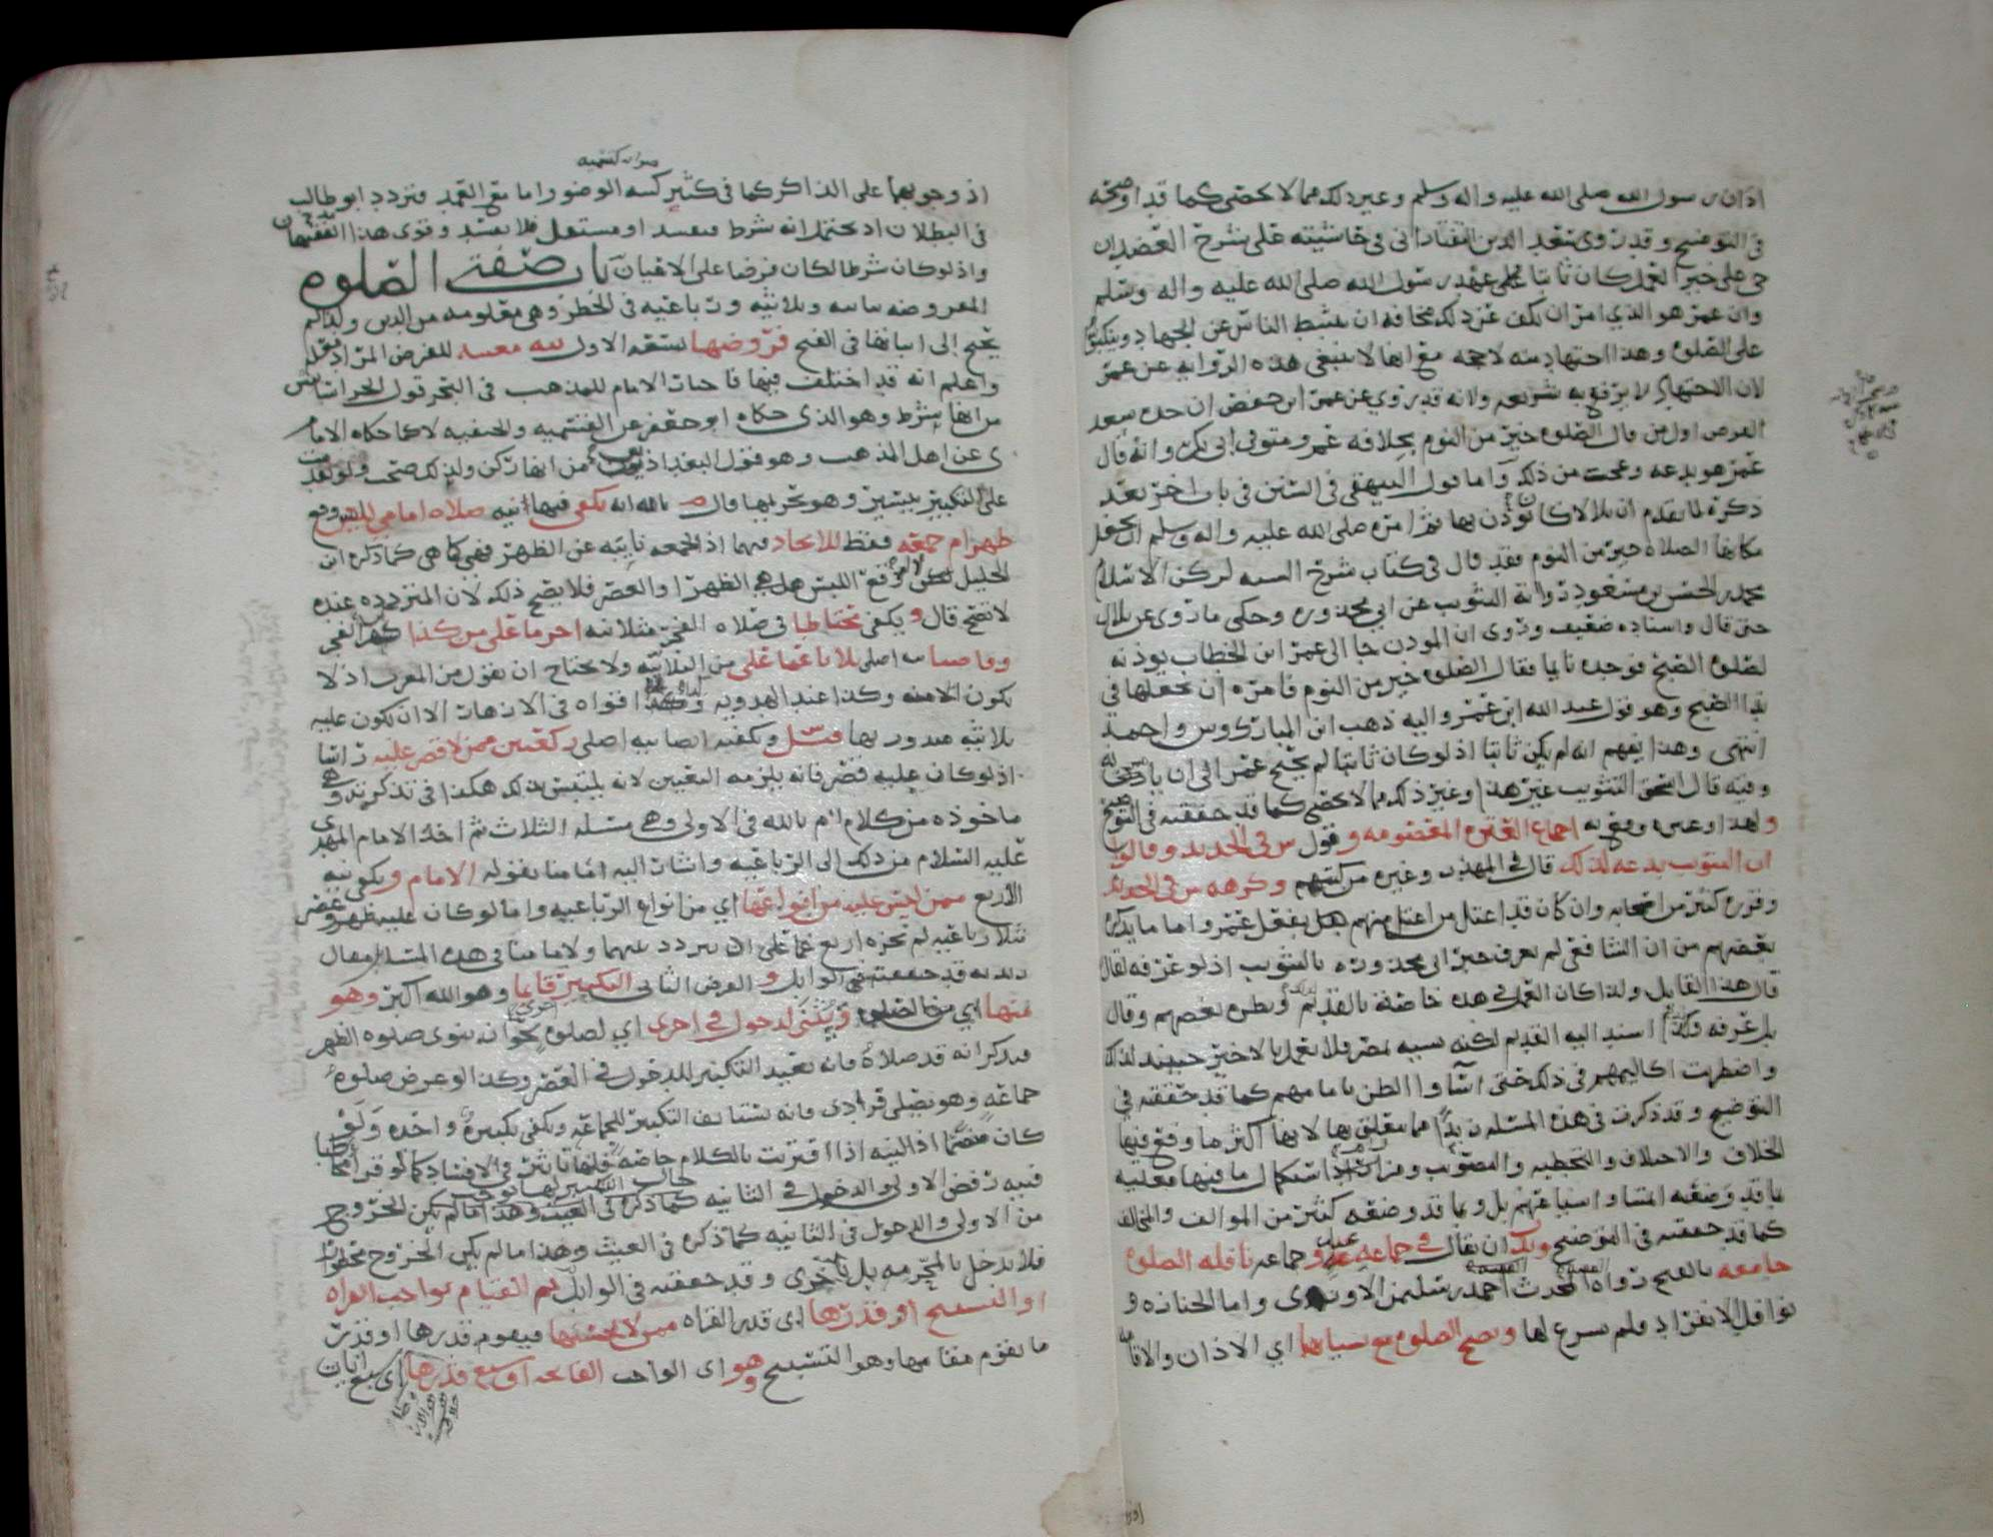 اذان رسول الله صلى الله عليه واله وسلم وغير ذلك مما لا يحصى كما قد اوضحته
في التوضيح وقد روى سعد الدين التفتازاني في حاشيته على شرح العضد ان
حي على خير العمل كان ثابتا على عهد رسول الله صلى الله عليه واله وسلم
وان عمر هو الذي امر ان يكف عن ذلك مخافة ان يثبط الناس عن الجهاد ويتكلوا
على الصلوه وهذا اجتهاد منه لا حجه مع انها لا ينبغي هذه الروايه عن عمر
لان الاجتهاد لا يرفع به شريعه ولانه قد روي عن عمر ابن حفص ان جده سعد
القرض اول من قال الصلوه خير من النوم بخلافه عمر ومتوفى ابي بكر وانه قال
عمر هو بدعه وعجبت من ذلك واما قول البيهقي في السنن في باب اخر بعد
ذكره لما تقدم ان بلالا كان يوذن بها ثم امره صلى الله عليه واله وسلم ان يجعل
مكانها الصلاة خير من النوم فقد قال في كتاب شرح السنه لركن الاسلام
محمد بن الحسن بن مسعود رواية التثويب عن ابي محذوره وحكى ما روى عن بلال
حتى قال واسناده ضعيف وروى ان الموذن جا الى عمر ابن الخطاب يوذنه
لصلوه الصبح فوجده نايما فقال الصلوه خير من النوم فامره ان يجعلها في
ندا الصبح وهو قول عبد الله ابن عمر واليه ذهب ابن المبارك وس واحمد
انتهى وهذا يفهم انه لم يكن ثابتا اذ لو كان ثابتا لم يحتج عمر الى ان ياذن له
وفيه قال اسحق التثويب غير هذا وغير ذلك مما لا يحصى كما قد حققته في التوضيح
ولهذا وغيره وقع به اجماع العتره المعصومه وقول س في الجديد وقالوا
ان التثويب بدعه لذلك قال في المهذب وغيره من كتبهم وكرهه س في الجديد
وقرره كثير من اصحابه وان كان قد اعتل من اعتل منهم بفعل عمر واما ما يذكره
بعضهم من ان الشافعي لم يعرف خبر ابي محذوره بالتثويب اذ لو عرفه لقال
قال هذا القايل ولذا كان العمل في هذه خاصة بالقديم وبطره بعضهم وقال
بل عرفه ولذا اسند اليه القديم لكنه نسيه بمصر فلا يعمل بالاخير حينئذ لذلك
واضطربت اكاليمهم في ذلك حتى اساوا الظن بامامهم كما قد حققته في
التوضيح وقد ذكرت في هذه المسئله نبذا مما يتعلق بها لانها اكثر ما وقع فيها
الخلاف والاختلاف والتخطيه والتصويب ومن اراد استكمال ما فيها فعليه
بما قد وضعه المشا واسياعهم بل وبما قد وضعه كثير من الموالف والمخالف
كما قد حققته في التوضيح وندب ان يقال في جماعه عيد وجماعه نافله الصلوه
جامعه بالفتح رواه المحدث احمد بن سليمن الاوزري واما الجنازه و
نوافل الانفراد فلم يشرع لها وتصح الصلوه مع نسيانهما اي الاذان والاقامه
صوابه كتسميه
اذ وجوبهما على الذاكر كما في كثير كنسه الوضو واما مع العمد فتردد ابو طالب
في البطلان اذ يحتمل انه شرط فيفسد او مستقل فلا يفسد وقوى هذا الفقيهان
واذ لو كان شرطا لكان فرضا على الاعيان باب صفة الصلوه
المفروضه ثنائيه وثلاثيه ورباعيه في الحظر وهي معلومه من الدين ولذا لم
يحتج الى اثباتها في الفتح فروضها تسعه الاول نيه معينه للفرض المراد فعله
واعلم انه قد اختلف فيها فاختار الامام للمذهب في البحر قول الخراسانيين
من انها شرط وهو الذي حكاه ابو جعفر عن القسميه والحنفيه لا كما حكاه الامام
ى عن اهل المذهب وهو قول البغداذيين من انها ركن ولذلك صحت ولو تقدمت
على التكبير بيسير وهو تحريمها وقال ص بالله انه يكفي فيها نيه صلاه امامي للبس وقع
ظهر ام جمعه فقط للاتحاد فيهما اذ الجمعه نايبه عن الظهر فهي كما هي كما ذكره ابن
الخليل لا لمن وقع اللبس هل هي الظهر او العصر فلا يصح ذلك لان المتردد عنده
لا تصح قال ويكفي محتاطا في صلاه الفجر مثلا نيه اخر ما علي من كذا كفر الفجر
وقاضيا نيه اصلي ثلاثا عما علي من الثلاثيه ولا يحتاج ان يقول من المغرب اذ لا
يكون الا منه وكذا عند الهدويه وكذا افواه في الازهار الا ان يكون عليه
ثلاثيه منذور بها فتبين ويكفيه ايضا نيه اصلي ركعتين ممن لا قصر عليه راسا
اذ لو كان عليه قصر فانه يلزمه التعيين لانه يلتبس بذلك هكذا في تذكرته وهي
ماخوذه من كلام م بالله في الاولى وهي مسئلة الثلاث ثم اخذ الامام المهدي
عليه السلام من ذلك الى الرباعيه واشار اليه امامنا بقوله الامام ويكفي نيه
الاربع ممن ليس عليه من انواعها اي من انواع الرباعيه واما لو كان عليه ظهر وعصر
مثلا رباعيه لم تجزه اربع عما علي اذ تردد بينهما ولامامنا في هذه المسئله مقال
قد حققته في الوابل و الفرض الثاني التكبير قايما وهو الله اكبر وهو
منها اي من الصلوه ويثنى لدخول في اخرى اي لصلوه اخرى نحو ان ينوى صلوه الظهر
فيذكر انه قد صلاه فانه يعيد التكبير للدخول في العصر وكذا لو عرض صلوه
جماعه وهو يصلي فرادى فانه يستانف التكبير للجماعه ويكفي تكبيره واحده ولو
كان متضمنا اذ النيه اذا اقترنت بالكلام خاصة فلها تاثير في الافساد كما لو قرا مخاطبا
فنيه رفض الاولى والدخول في الثانيه كما ذكره في الغيث وهذا ما لم يكن الخروج
من الاولى والدخول في الثانيه كما ذكره في الغيث وهذا ما لم يكن الخروج محظورا
فلا يدخل بالمحرمه بل باخرى وقد حققته في الوابل ثم القيام بواجب القراه
او التسبيح او قدرها اي قدر القراه ممن لا يحسنها فيقوم قدرها او قدر
ما يقوم مقامها وهو التسبيح وهو اى الواجب الفاتحه او سبع قدرها اى سبع ايات